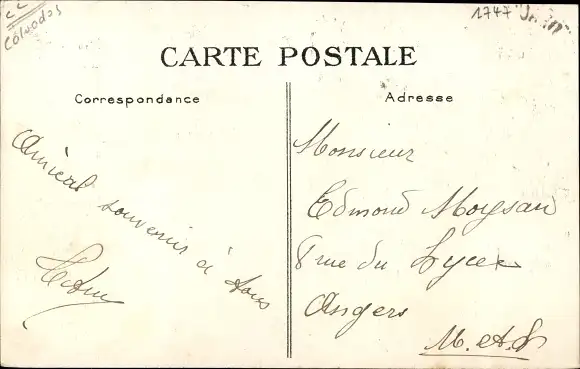 Calvados
1747
CARTE POSTALE
Correspondance
Adresse
Amical souvenir à tous
Monsieur
Edmond Moysan
rue du Lycée
Angers
M. et L.